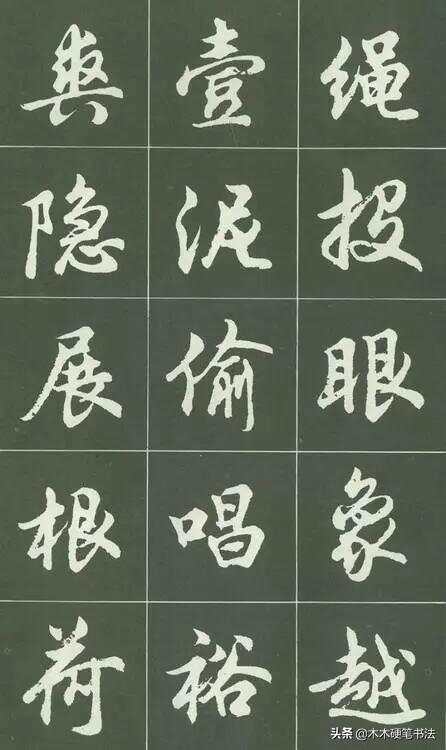 绳投眼象越
壹泥偷唱裕
隐展根荷
头条 @木木硬笔书法